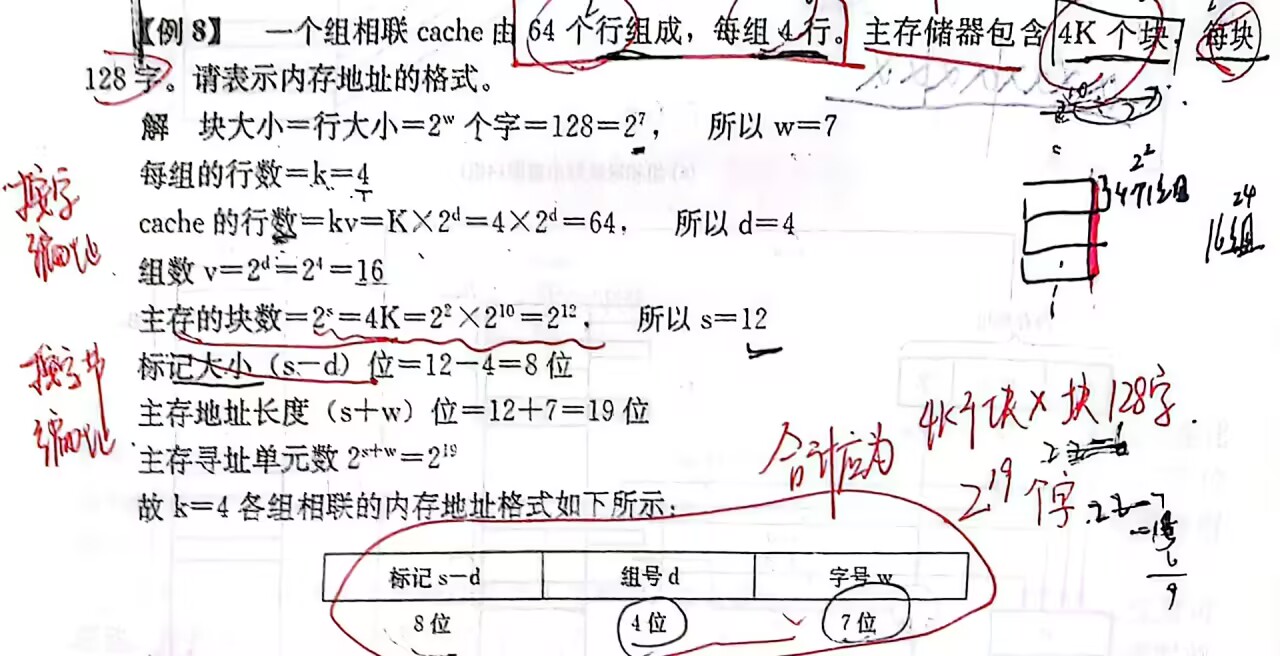 【例 8】 一个组相联 cache 由 64 个行组成，每组 4 行。主存储器包含 4K 个块，每块
128 字。请表示内存地址的格式。
解 块大小＝行大小＝2ʷ 个字＝128＝2⁷， 所以 w＝7
每组的行数＝k＝4
cache 的行数＝kv＝K×2ᵈ＝4×2ᵈ＝64， 所以 d＝4
组数 v＝2ᵈ＝2⁴＝16
主存的块数＝2ˢ＝4K＝2²×2¹⁰＝2¹²， 所以 s＝12
标记大小（s－d）位＝12－4＝8 位
主存地址长度（s＋w）位＝12＋7＝19 位
主存寻址单元数 2ˢ⁺ʷ＝2¹⁹
故 k＝4 各组相联的内存地址格式如下所示：
标记 s－d 组号 d 字号 w
8 位 4 位 7 位
按字
编址
按字节
编址
2²
2⁴
16组
合计应为
4K个块×块128字
2¹⁹个字